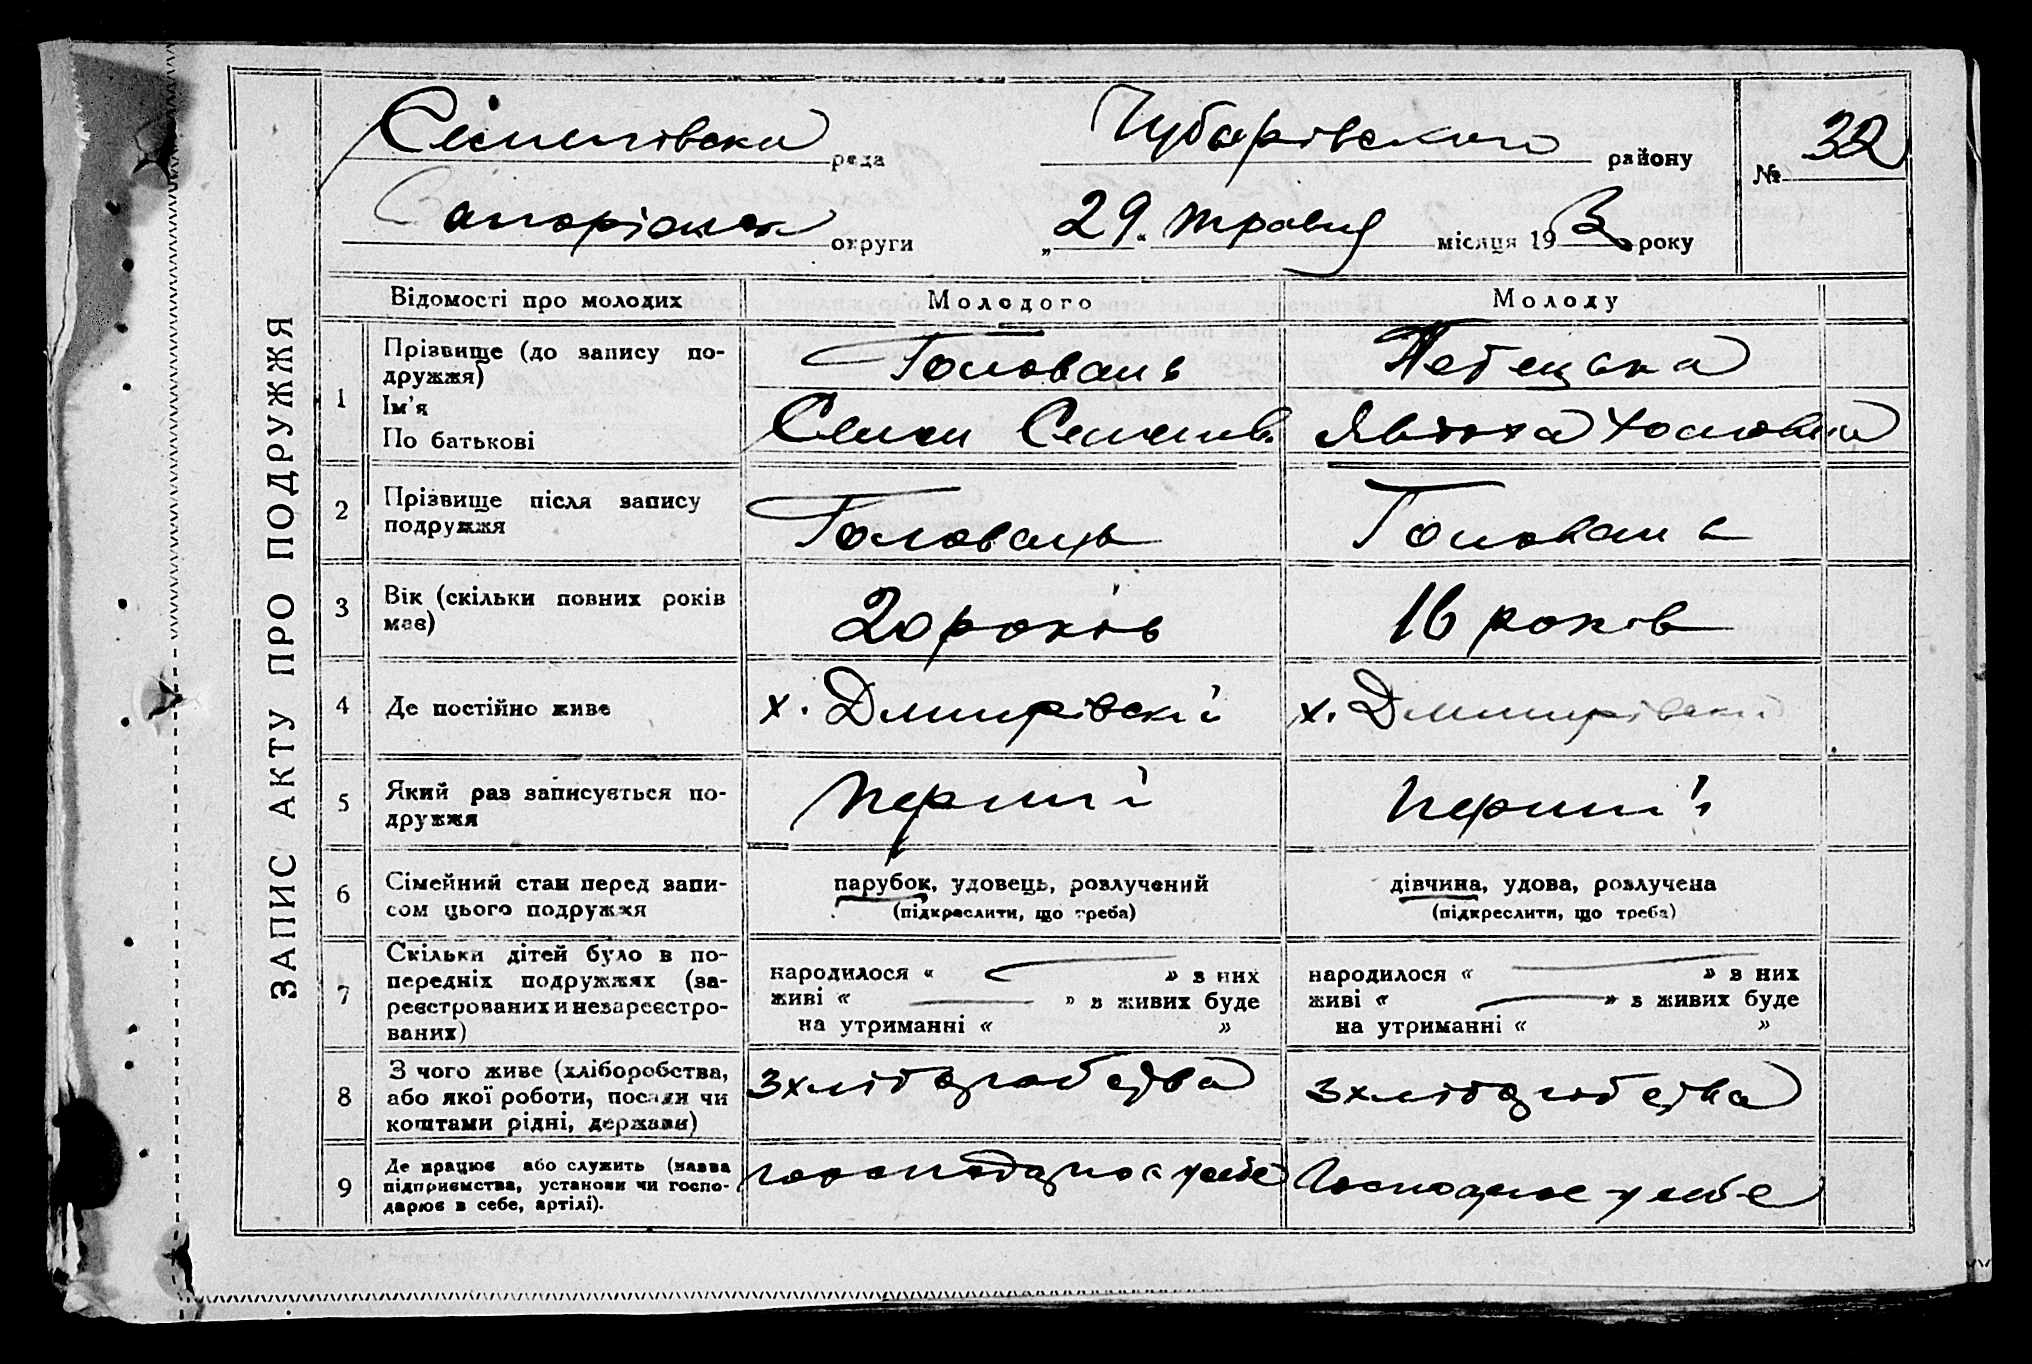 ЗАПИС АКТУ ПРО ПОДРУЖЖЯ
рада
Чубарівського району
№ 32
Запоріжськ округи
„29“ травня місяця 193 року
Відомості про молодих
Молодого
Молоду
1
Прізвище (до запису по-
дружжя)
Ім'я
По батькові
Головань
Семен Семенів
2
Прізвище після запису
подружжя
Головань
Головань
3
Вік (скільки повних років
має)
20 років
16 років
4
Де постійно живе
х. Дмитрівський
х. Дмитрівський
5
Який раз записується по-
дружжя
перший
перший
6
Сімейний стан перед запи-
сом цього подружжя
парубок, удовець, розлучений
(підкреслити, що треба)
дівчина, удова, розлучена
(підкреслити, що треба)
7
Скільки дітей було в по-
передніх подружжях (за-
реєстрованих и незареєстро-
ваних)
народилося « — » з них
живі « — » з живих буде
на утриманні « »
народилося « — » з них
живі « — » з живих буде
на утриманні « »
8
З чого живе (хліборобства,
або якої роботи, посади чи
коштами рідні, держави)
з хліборобства
з хліборобства
9
Де працює або служить (назва
підприємства, установи чи госпо-
дарює в себе, артілі).
у себе
у себе